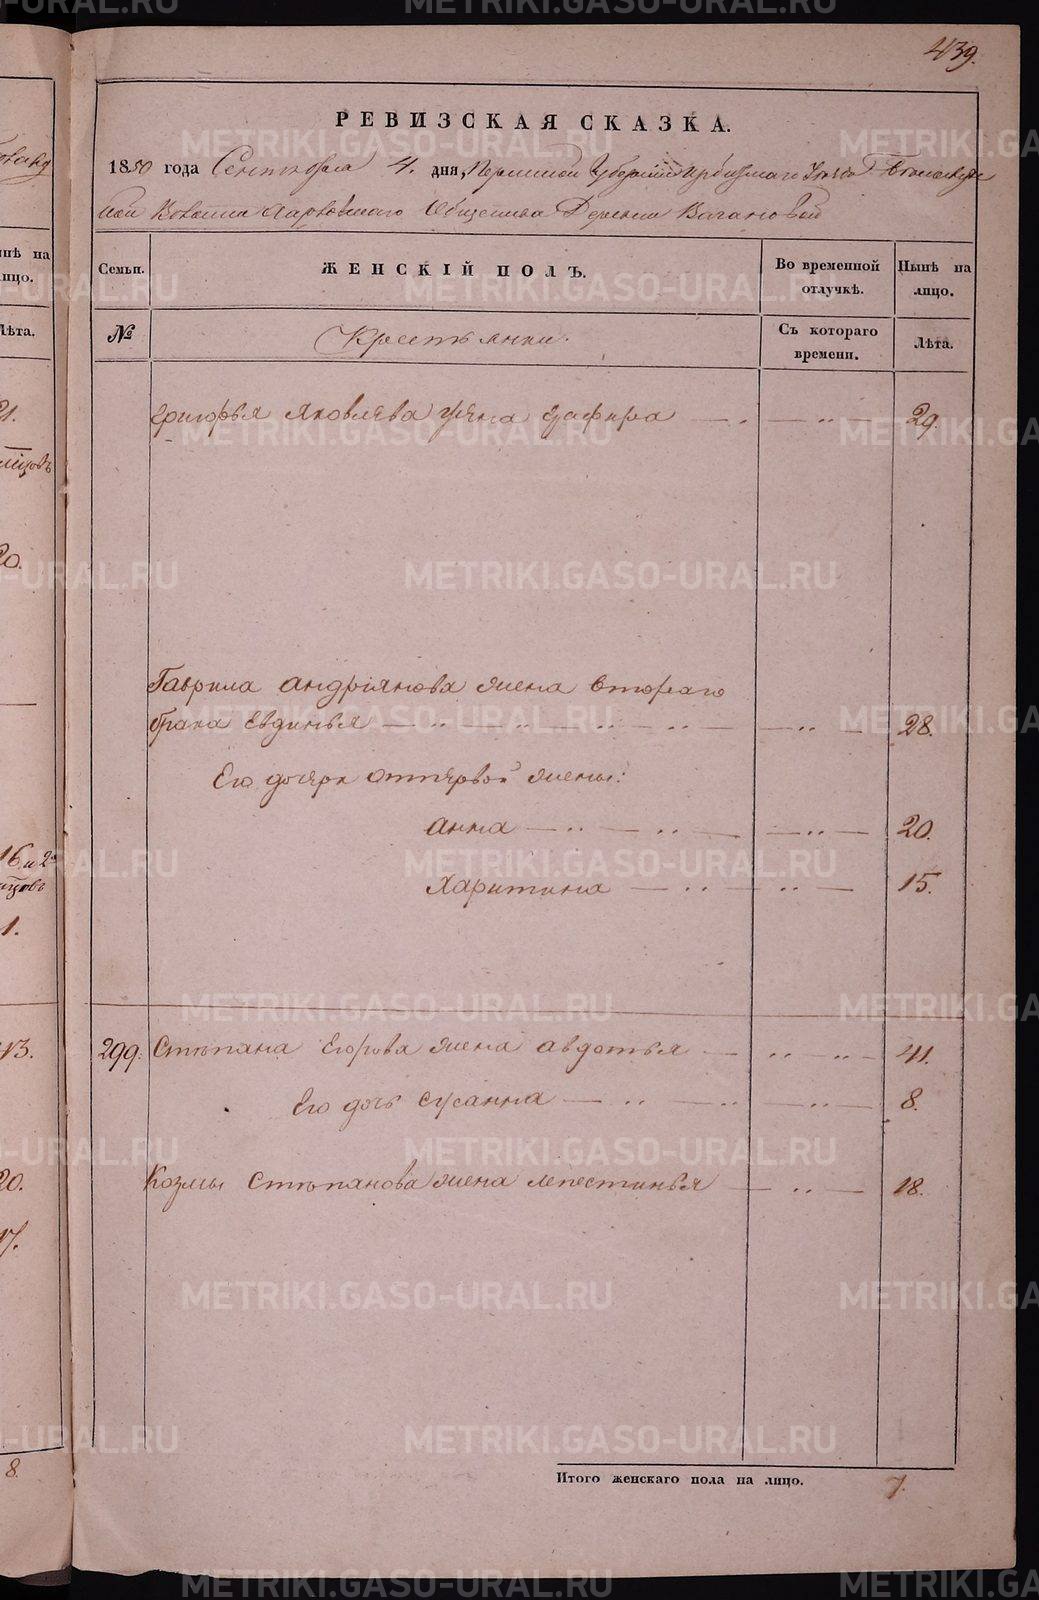 439.
РЕВИЗСКАЯ СКАЗКА.
1850 года Сентября 4. дня, Пермской Губернии Ирбитскаго Уезда
Волости Харловскаго Общества Деревни Вагановой
Семьи.
ЖЕНСКІЙ ПОЛЪ.
Во временной отлучкѣ.
Нынѣ на лицо.
№
Крестьянки.
Съ котораго времени.
Лѣта.
Григорья Яковлева жена Глафира — 29.
Гаврила Андріянова жена втораго
брака Евдинья — 28.
Его дочери отпервой жены:
Анна — 20.
Харитина — 15.
299. Стѣпана Егорова жена Авдотья — 41.
Его дочь Сусанна — 8.
Козмы Стѣпанова жена Лепестинья — 18.
Итого женскаго пола на лицо. 7.
нѣ на
ицо.
Лѣта.
21.
20.
16. и 2
1.
43.
20.
17.
8.
METRIKI.GASO-URAL.RU